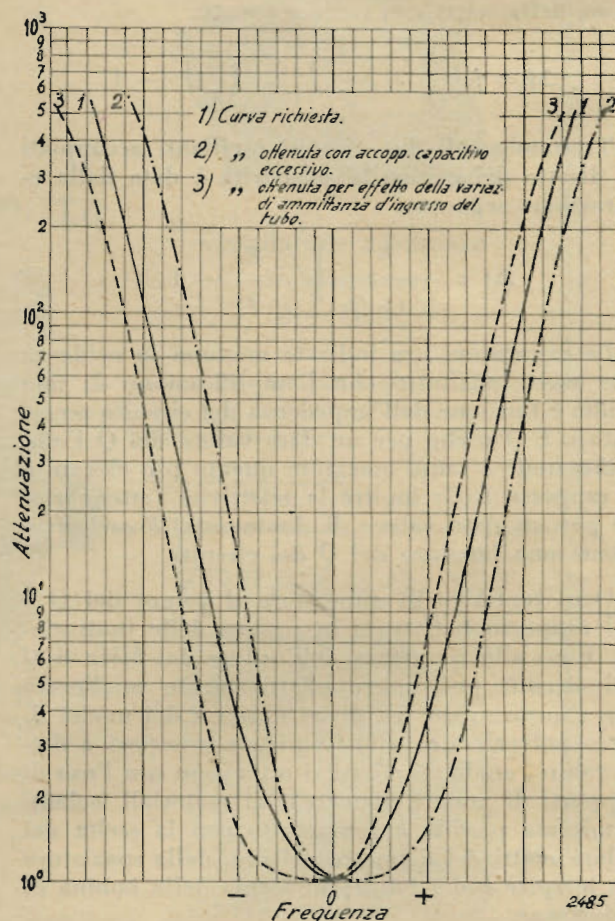 10³
9
8
7
6
5
4
3
2
10²
9
8
7
6
5
4
3
2
10¹
9
8
7
6
5
4
3
2
10⁰
Attenuazione
3 1 2
3 1 2
1) Curva richiesta.
2) „ ottenuta con accopp. capacitivo
eccessivo.
3) „ ottenuta per effetto della variaz.
di ammittanza d'ingresso del
tubo.
− 0 +
Frequenza
2485